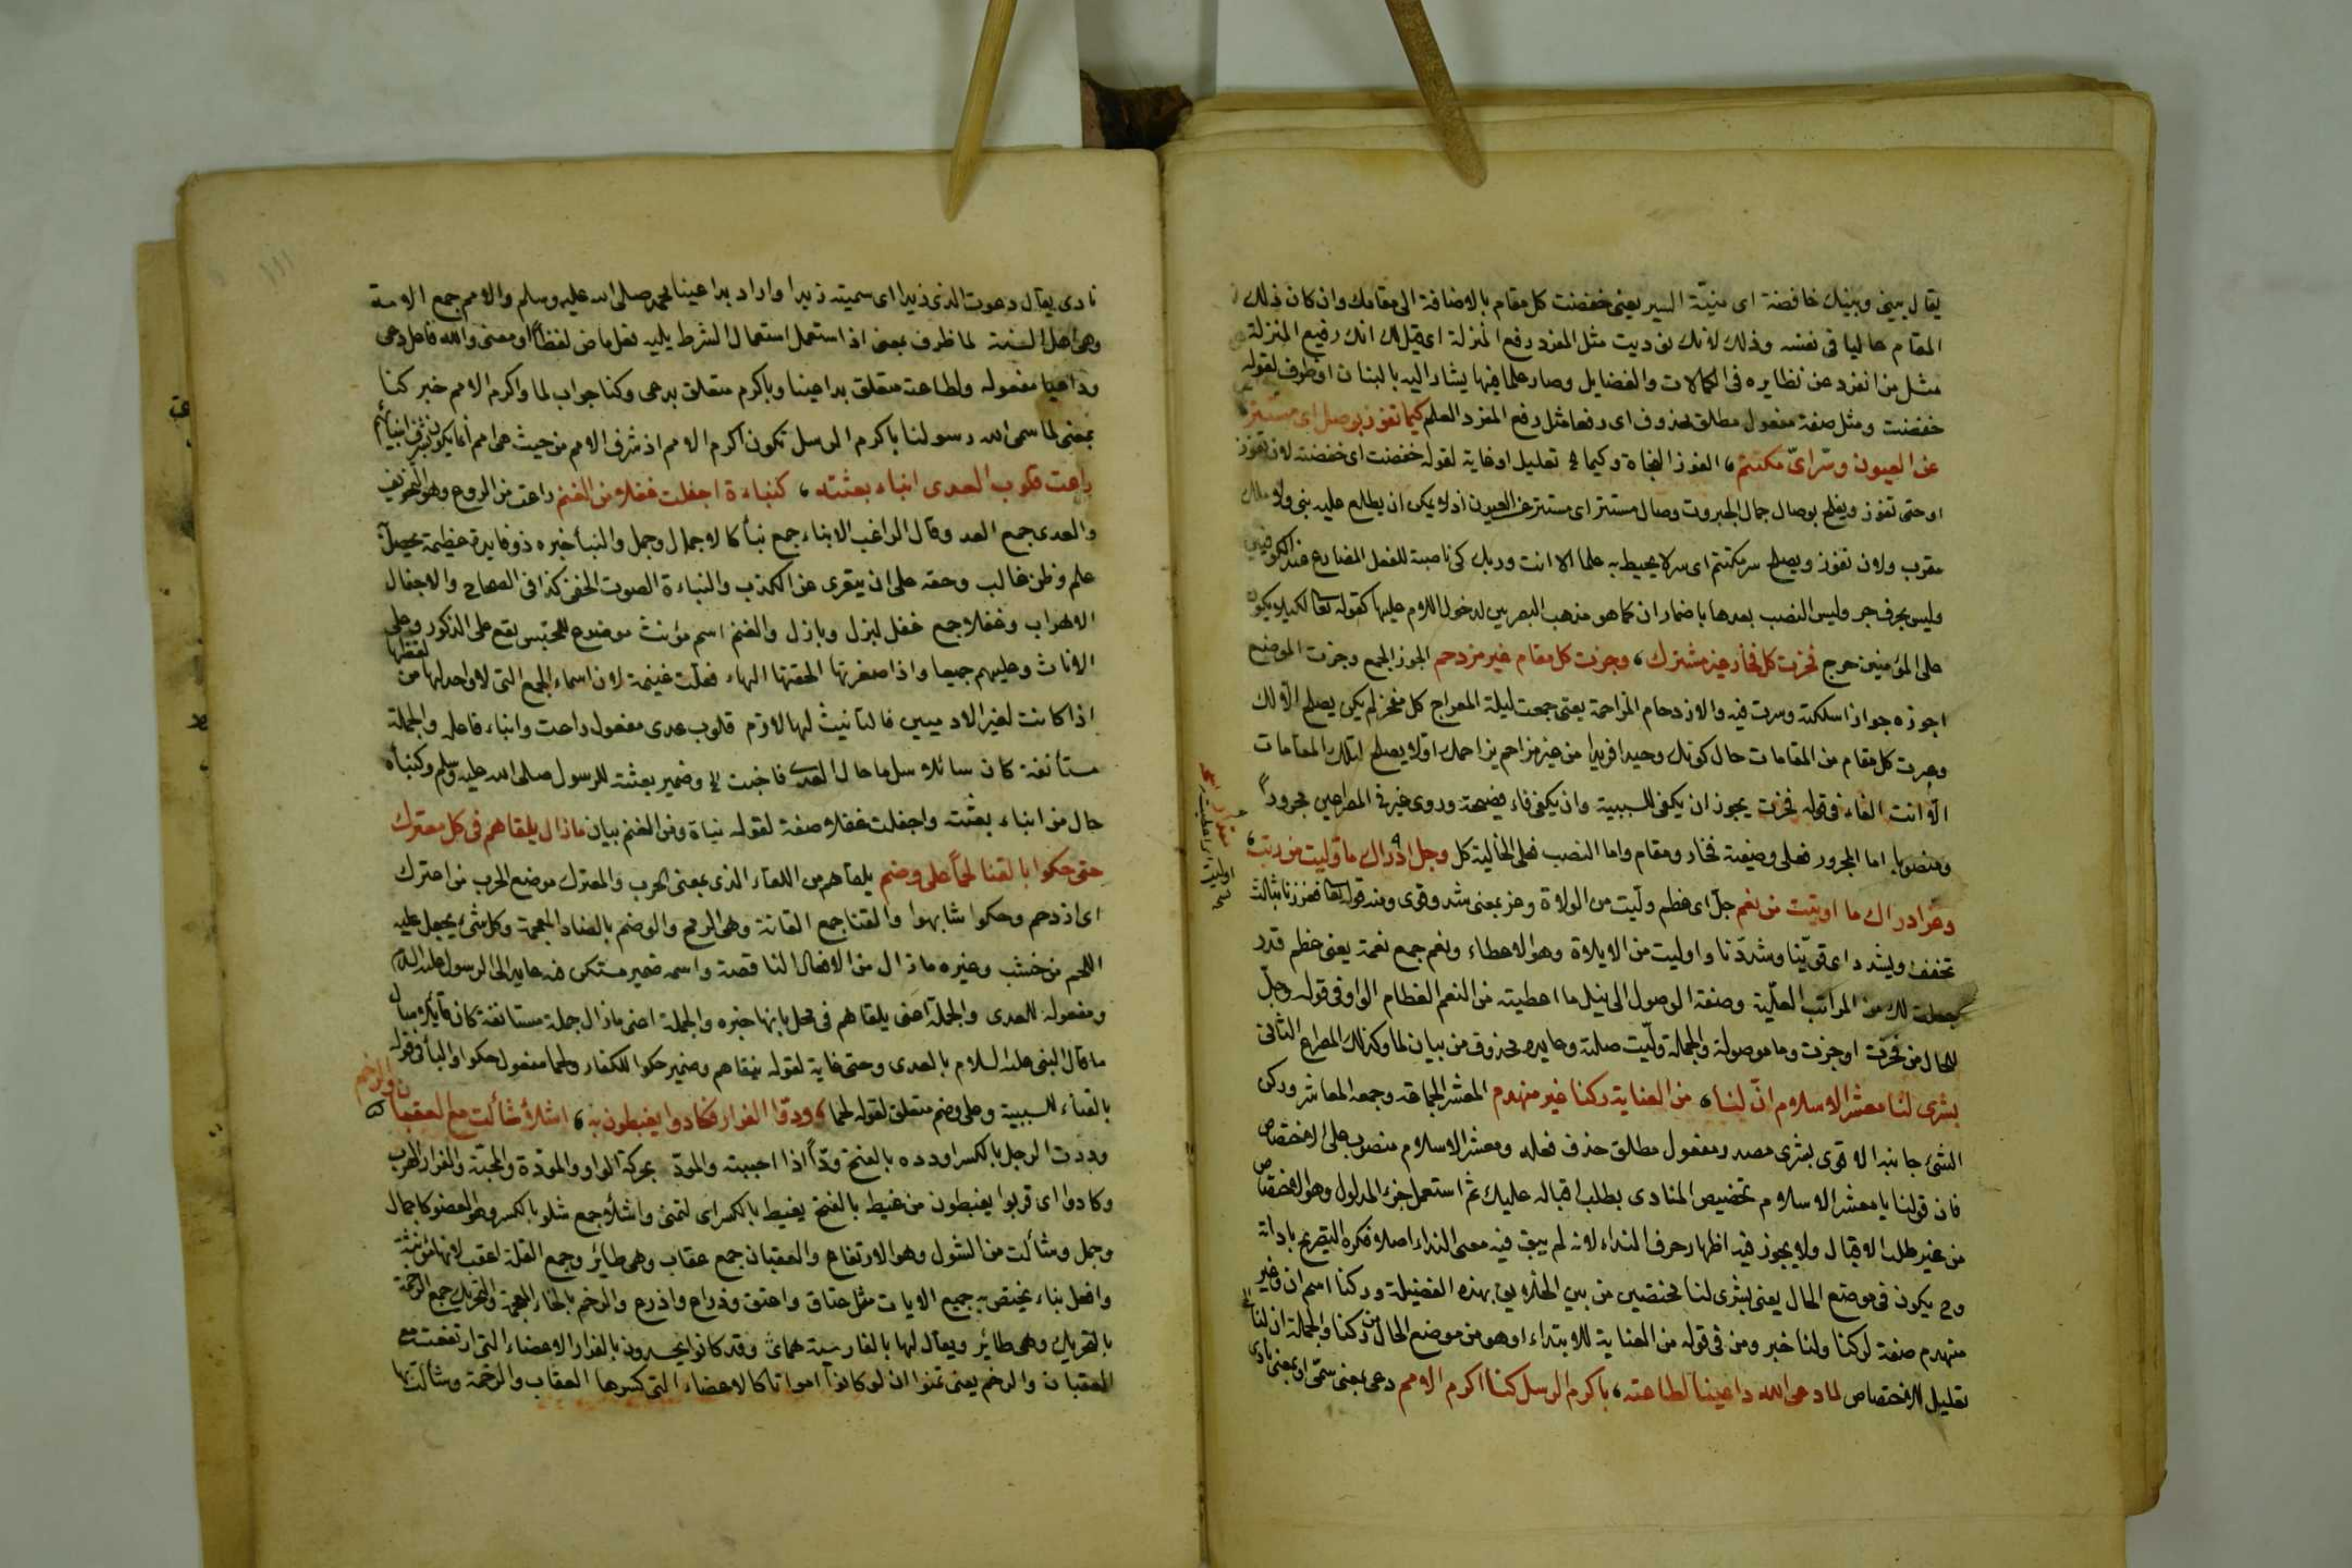 يقال بيني وبينك خافضة اى هنيّة السير يعنى خفضت كل مقام بالاضافة الى مقامك وان كان ذلك
المقام عاليا فى نفسه وذلك لانك نوديت مثل المفرد رفع المنزلة اى قيل لك انك رفيع المنزلة
مثل من انفرد عن نظايره فى الكمالات والفضايل وصار علما فيها يشار اليه بالبنان اذ ظرف لقوله
خفضت ومثل صفة مفعول مطلق محذوف اى رفعا مثل رفع المفرد العلم كيما تفوز بوصل اى مستتر
عن العيون وسرّ اىّ مكتتم، الفوز النجاة وكيما تعليل او غاية لقوله خفضت اى خفضته لان تفوز
او حتى تفوز ويفلح بوصال جمال الجبروت وصال مستتر اى مستتر عن العيون اذ لا يمكن ان يطلع عليه نبى ولا ملك
مقرب ولان تفوز ويصلح سر مكتتم اى سر لا يحيط به علما الا انت وربك كى ناصبة للفعل المضارع عند الكوفيين
وليس بحرف جر وليس النصب بعدها باضمار ان كما هو مذهب البصريين لدخول اللام عليها كقوله تعا لكيلا يكون
على المؤمنين حرج فحزت كل فخار غير مشترك، وجزت كل مقام غير مزدحم الحوز الجمع وجزت الموضع
اجوزه جوازا سلكته وسرت فيه والازدحام المزاحمة يعنى جمعت ليلة المعراج كل مفخر لم يكن يصلح الا لك
وعبرت كل مقام من المقامات حال كونك وحيدا فريدا من غير مزاحم يزاحمك اذ لا يصلح لتلك المقامات
الّا انت الفاء فى قوله فحزت يجوز ان يكون للسببية وان يكون فاء فصيحة وروى غير فى المصراعين مجرورا
ومنصوبا اما المجرور فعلى وصفية فخار ومقام واما النصب فعلى الحالية كل وجل ادراك ما وليت من رتب،
وعز ادراك ما اوليت من نعم جلّ اى عظم ولّيت من الولاة وعز بمعنى شد وقوى ومنه قوله تعا فعززنا بثالث
تخفف ويشدد اى قوّينا وشدّدنا واوليت من الايلاة وهو الاعطاء ونعم جمع نعمة يعنى عظم قدر
جعلت لك من المراتب العليّة وصفة الوصول الى نيل ما اعطيته من النعم العظام الواو فى قوله وجلّ
للحال من فحزت او جزت وما موصولة والجملة ولّيت صلته وعايده محذوف من بيان لما وكذلك المصراع الثانى
بشرى لنا معشر الاسلام انّ لنا، من العناية ركنا غير منهدم المعشر الجماعة وجمعه المعاشر وركن
الشئ جانبه الاقوى بشرى مصدر ومفعول مطلق حذف فعله ومعشر الاسلام منصوب على الاختصاص
فان قولنا يا معشر الاسلام تخصيص المنادى بطلب اقباله عليك ثم استعمل جزء المدلول وهو الاختصاص
من غير طلب الاقبال ولا يجوز فيه اظهار حرف النداء لانه لم يبق فيه معنى النداء اصلا فكره التصريح باداته
وح يكون فى موضع الحال يعنى بشرى لنا مختصين من بين الخلايق بهذه الفضيلة وركنا اسم ان وغير
منهدم صفة لركنا ولنا خبر ومن فى قوله من العناية للابتداء وهو من موضع الحال من ركنا والجملة ان لنا
تعليل للاختصاص لما دعى الله داعينا لطاعته، باكرم الرسل كنا اكرم الامم دعى بمعنى سمّى او بمعنى نادى
نادى يقال دعوت الذى زيدا اى سميته زيدا واراد بداعينا محمد صلى الله عليه وسلم والامم جمع الامة
وهى اهل السنة لما ظرف بمعنى اذ استعمل استعمال الشرط يليه فعل ماض لفظا او معنى والله فاعل دعى
وداعينا مفعوله ولطاعته متعلق بداعينا وباكرم متعلق بدعى وكنا جواب لما واكرم الامم خبر كنا
بمعنى لما سمى الله رسولنا باكرم الرسل نكون اكرم الامم اذ شرف الامم من حيث هى امم انما يكون بشرف انبيائهم
راعت قلوب العدى انباء بعثته، كنباءة اجفلت غفلا من الغنم راعت من الروع وهو التخويف
والعدى جمع العدو قال الراغب الانباء جمع نبأ كالاجمال وجمل والنبأ خبره ذو فايدة عظيمة يحصل به
علم وظن غالب وحقه على ان يتعرى عن الكذب والنباءة الصوت الخفى كذا فى الصحاح والاجفال
الاهراب وغفلا جمع غفل لبزل وبازل والغنم اسم مؤنث موضوع للجنس يقع على الذكور وعلى
الاناث وعليهم جميعا واذا صغرتها الحقتها الهاء فقلت غنيمة لان اسماء الجمع التى لا واحد لها من لفظها
اذا كانت لغير الادميين فالتأنيث لها لازم قلوب عدى مفعول راعت وانباء فاعله والجملة
مستأنفة كان سائلا سئل ما حال العدى فاجبت وضمير بعثته للرسول صلى الله عليه وسلم وكنبأة
حال من انباء بعثته واجفلت غفلا صفة لقوله نبأة ومن الغنم بيان ما زال يلقاهم فى كل معترك
حتى حكوا بالقنا لحما على وضم يلقاهم من اللقاء الذى بمعنى الحرب والمعترك موضع الحرب من اعترك
اى ازدحم وحكوا شابهوا والقنا جمع القناة وهى الرمح والوضم بالضاد المعجمة وكل شئ يجعل عليه
اللحم من خشب وغيره ما زال من الافعال الناقصة واسمه ضمير مستكن فيه عايد الى الرسول عليه السلام
ومفعوله العدى والجملة اعنى يلقاهم فى محل بانها خبره والجملة اعنى ما زال جملة مستانفة كان قائلا سأل
ما قال النبى عليه السلام بالعدى وحتى غاية لقوله يلقاهم وضمير حكوا للكفار ولحما مفعول حكوا والباء فى قوله
بالقناء للسببية وعلى وضم متعلق لقوله لحما، ودّوا الفرار فكادوا يغبطون به، اشلاء شالت مع العقبان والرخم
وددت الرجل بالكسر اوده بالفتح ودّا اذا احببته والمودّ بحركة الواو والمودّة والمحبّة والفرار الهرب
وكادوا اى قربوا يغبطون من غبط بالفتح يغبط بالكسر اى لتمنى واشلاء جمع شلو بالكسر وهو العضو كاجمال
وجمل وشالت من الشول وهو الارتفاع والعقبان جمع عقاب وهى طائر وجمع القلة اعقب لانها مؤنثة
وافعل بناء يختص به جميع الايات مثل عناق واعنق وذراع واذرع والرخم بالخاء المعجمة والتحريك جمع الرخمة
بالتحريك وهى طائر ويقال لها بالفارسية هماى وقد كانوا يحسدون بالفرار الاعضاء التى ارتفعت مع
العقبان والرخم يعنى تمنوا ان لو كانوا امواتا كالاعضاء التى كسرها العقاب والرخمة وشالتها